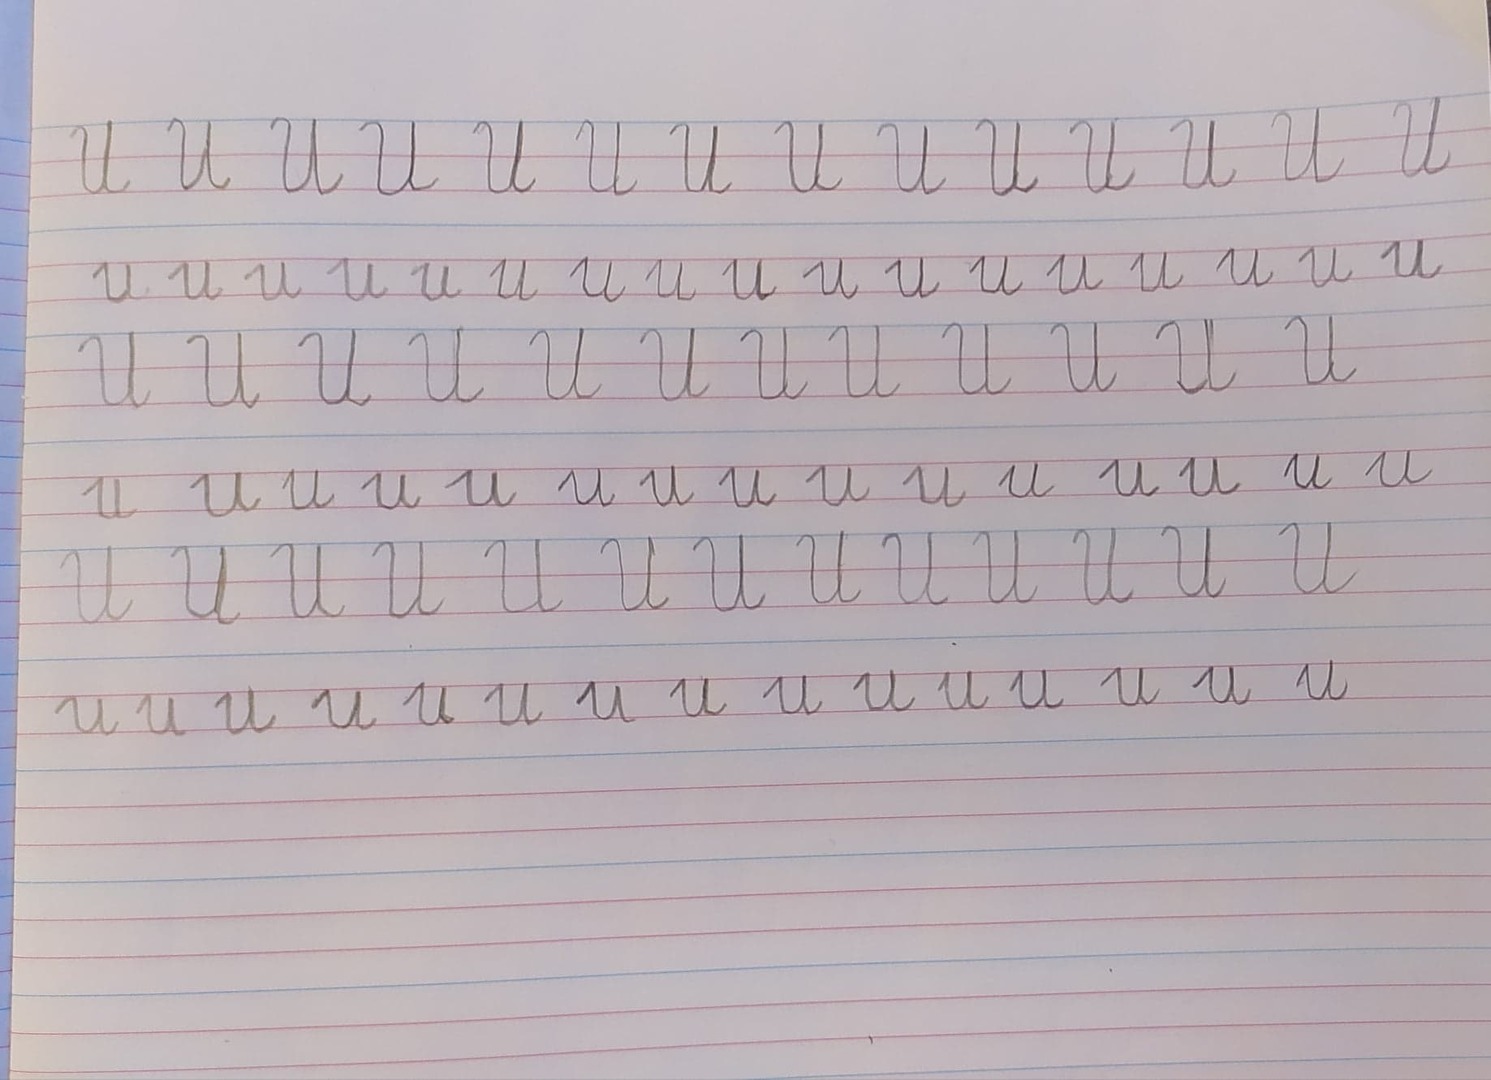 U U U U U U U U U U U U U U
u u u u u u u u u u u u u u u u u
U U U U U U U U U U U U
u u u u u u u u u u u u u u u
U U U U U U U U U U U U U
u u u u u u u u u u u u u u u